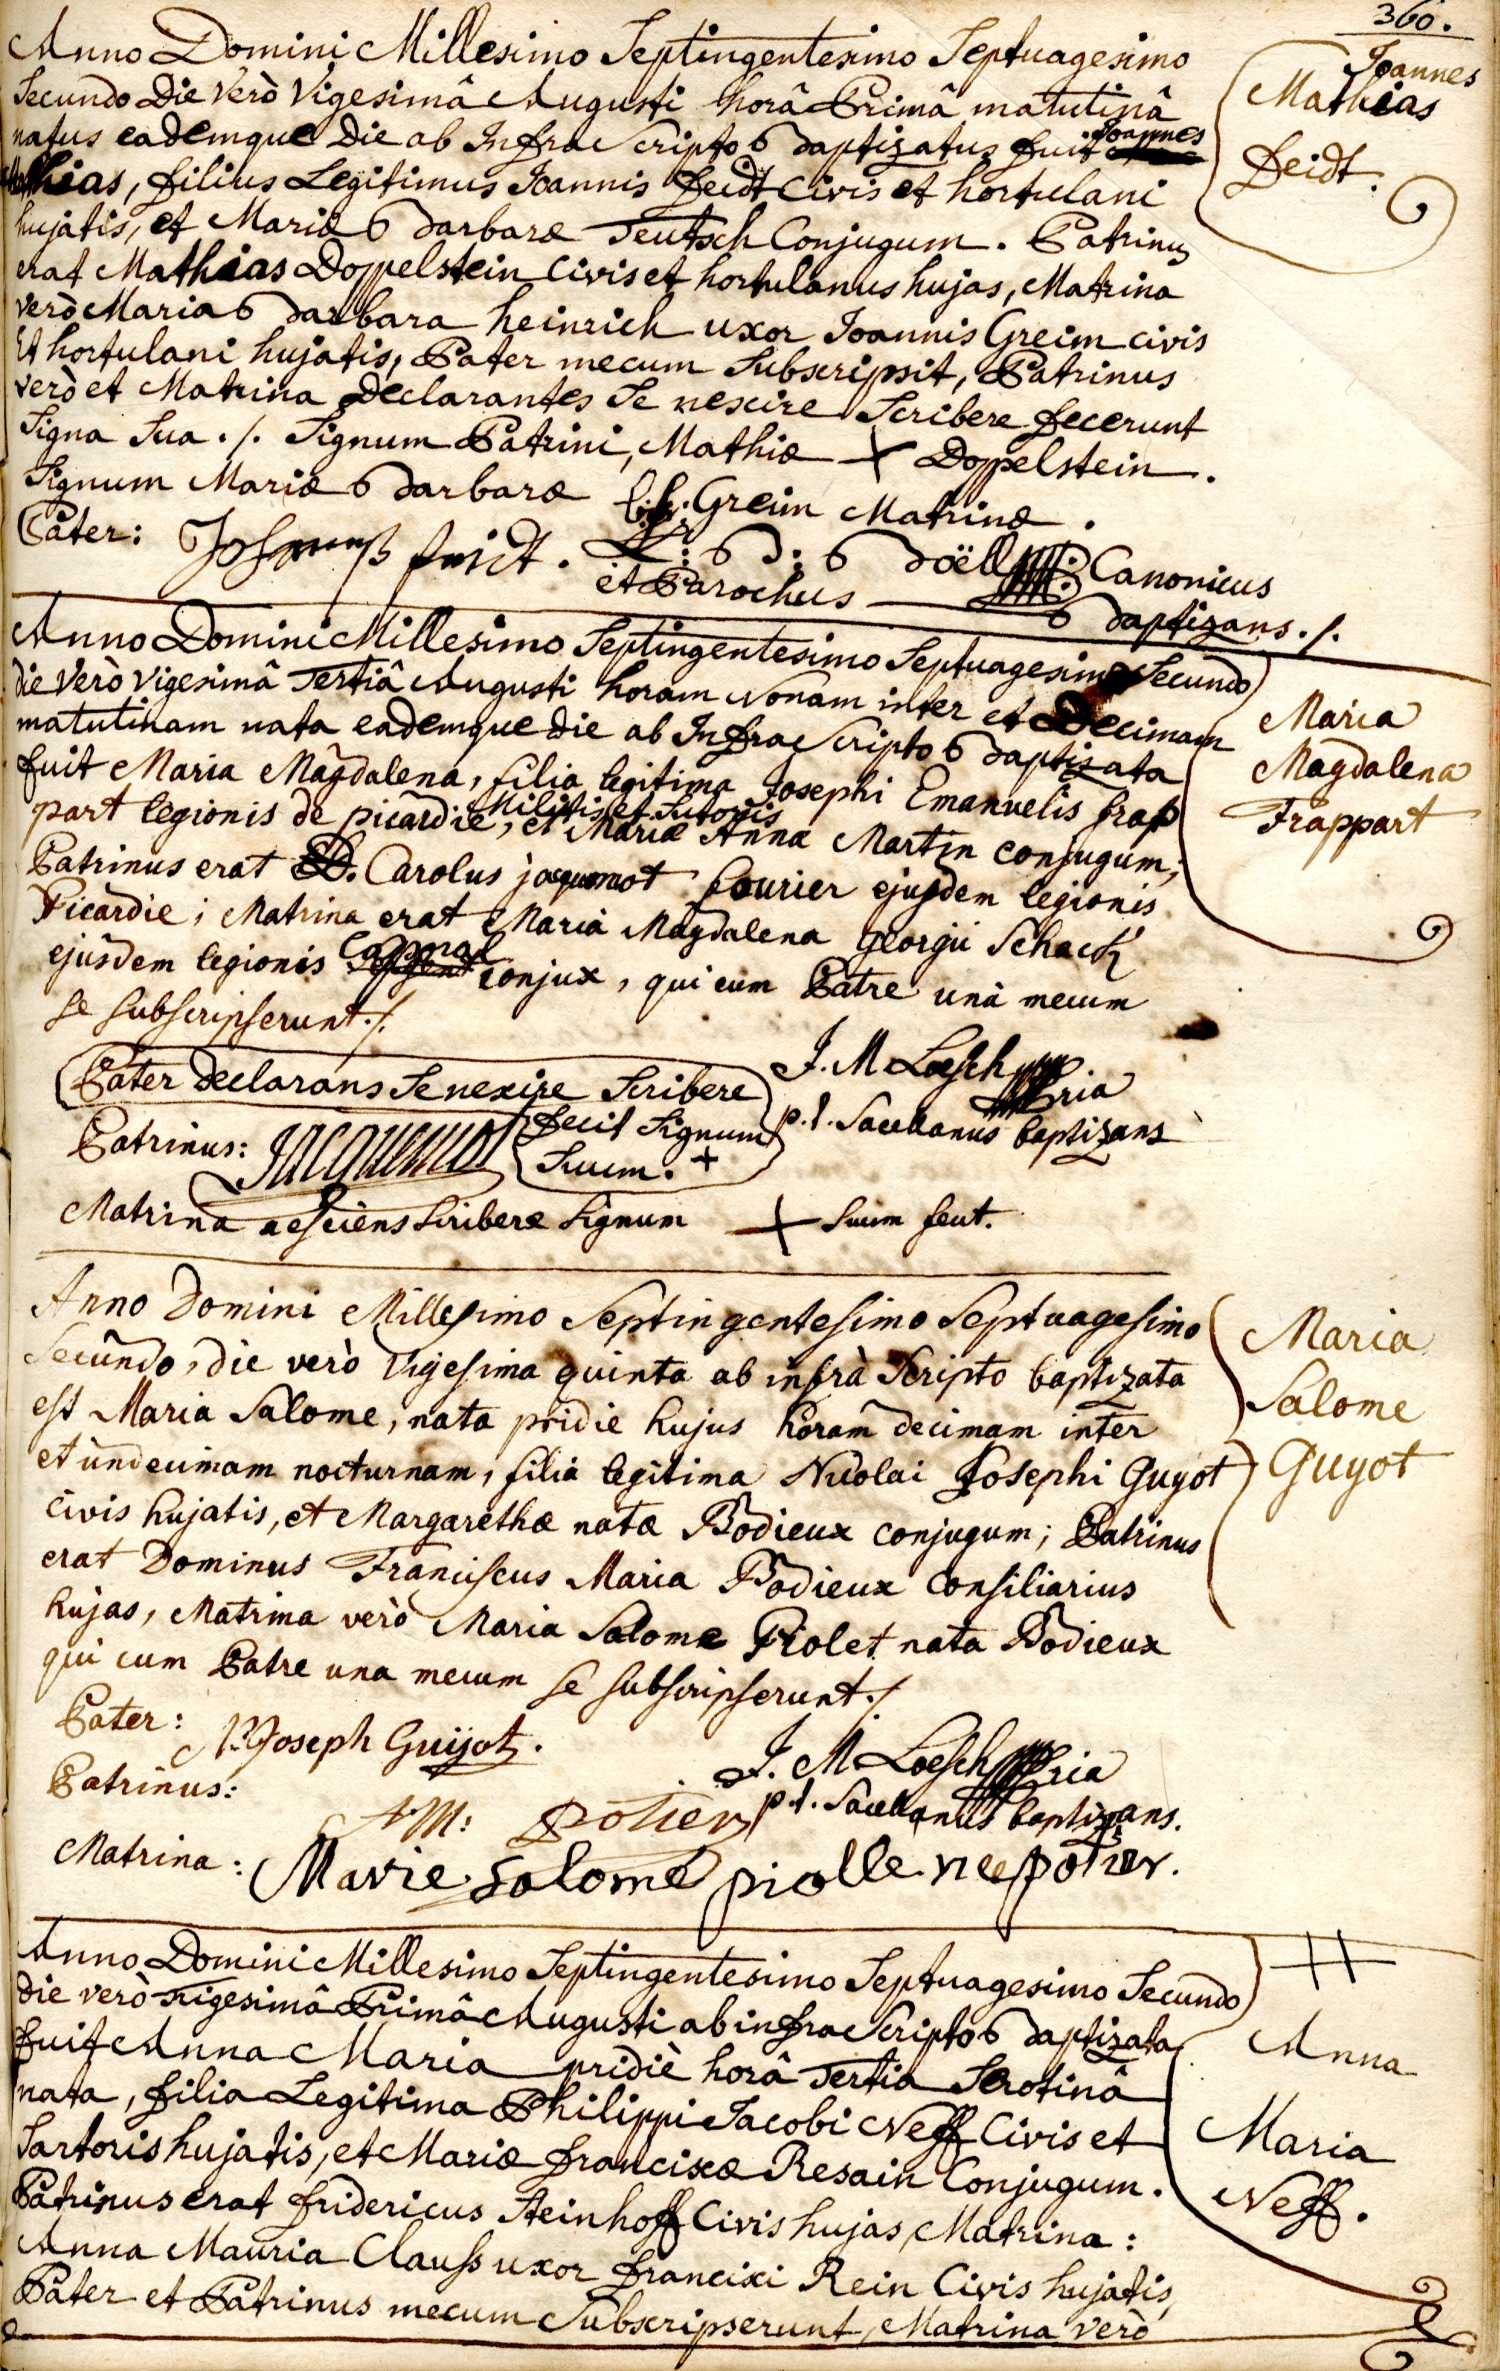 360.
Anno Domini Millesimo Septingentesimo Septuagesimo
Secundo Die Verò Vigesimâ Augusti horâ Primâ matutinâ
natus eademque Die ab Infra Scripto Baptizatus fuit Joannes
Mathias, filius Legitimus Joannis Feidt Civis et hortulani
hujatis, et Mariæ Barbaræ Teutsch Conjugum. Patrinus
erat Mathias Doppelstein Civis et hortulanus hujas, Matrina
verò Maria Barbara Heinrich uxor Joannis Greim civis
Et hortulani hujatis, Pater mecum Subscripsit, Patrinus
verò et Matrina Declarantes Se nescire Scribere fecerunt
Signa Sua ./. Signum Patrini, Mathiæ + Doppelstein.
Signum Mariæ Barbaræ Greim Matrinæ.
Pater: Johannes feidt. L: B: Boëll Canonicus
et Parochus Baptizans ./.
Joannes
Mathias
Feidt.
Anno Domini Millesimo Septingentesimo Septuagesimo Secundo
die Verò Vigesimâ Tertiâ Augusti horam Nonam inter et Decimam
matutinam nata eademque die ab Infra Scripto Baptizata
fuit Maria Magdalena, filia legitima Josephi Emanuelis frap
part legionis de picardie, Militis et Sutoris et Mariæ Anna Martin conjugum;
Patrinus erat D. Carolus jaquemot fourier ejusdem legionis
Picardie; Matrina erat Maria Magdalena georgii Schack
ejusdem legionis Caporal conjux, qui cum Patre unà mecum
se subscripserunt ./.
Pater declarans Se nescire Scribere
fecit Signum
Suum. +
J. M Loesch
p.t. Sacellanus baptizans
Patrinus: JACQUEMOT
Matrina nesciens Scribere Signum + Suum fecit.
Maria
Magdalena
Frappart
Anno Domini Millesimo Septingentesimo Septuagesimo
Secundo, die verò Vigesima quinta ab infrà Scripto baptizata
est Maria Salome, nata pridie hujus horam decimam inter
et undecimam nocturnam, filia legitima Nicolai Josephi Guyot
civis hujatis, et Margarethæ natæ Bodieux conjugum; Patrinus
erat Dominus Franciscus Maria Bodieux Consiliarius
hujas, Matrina verò Maria Salome Piolet nata Bodieux
qui cum Patre una mecum se subscripserunt ./.
Pater: N: Joseph Guijot.
J. M Loesch
p.t. Sacellanus baptizans.
Patrinus: potier
Matrina: Marie salome piolle nee potier.
Maria
Salome
Guyot
Anno Domini Millesimo Septingentesimo Septuagesimo Secundo
die verò Trigesimâ Primâ Augusti ab infra Scripto Baptizata
fuit Anna Maria pridiè horâ Tertia Serotinâ
nata, filia Legitima Philippi Jacobi Neff Civis et
Sartoris hujatis, et Mariæ franciscæ Resain Conjugum.
Patrinus erat fridericus Steinhoff Civis hujas, Matrina:
Anna Mauria Clauss uxor francisci Rein Civis hujatis,
Pater et Patrinus mecum Subscripserunt, Matrina verò
Anna
Maria
Neff.